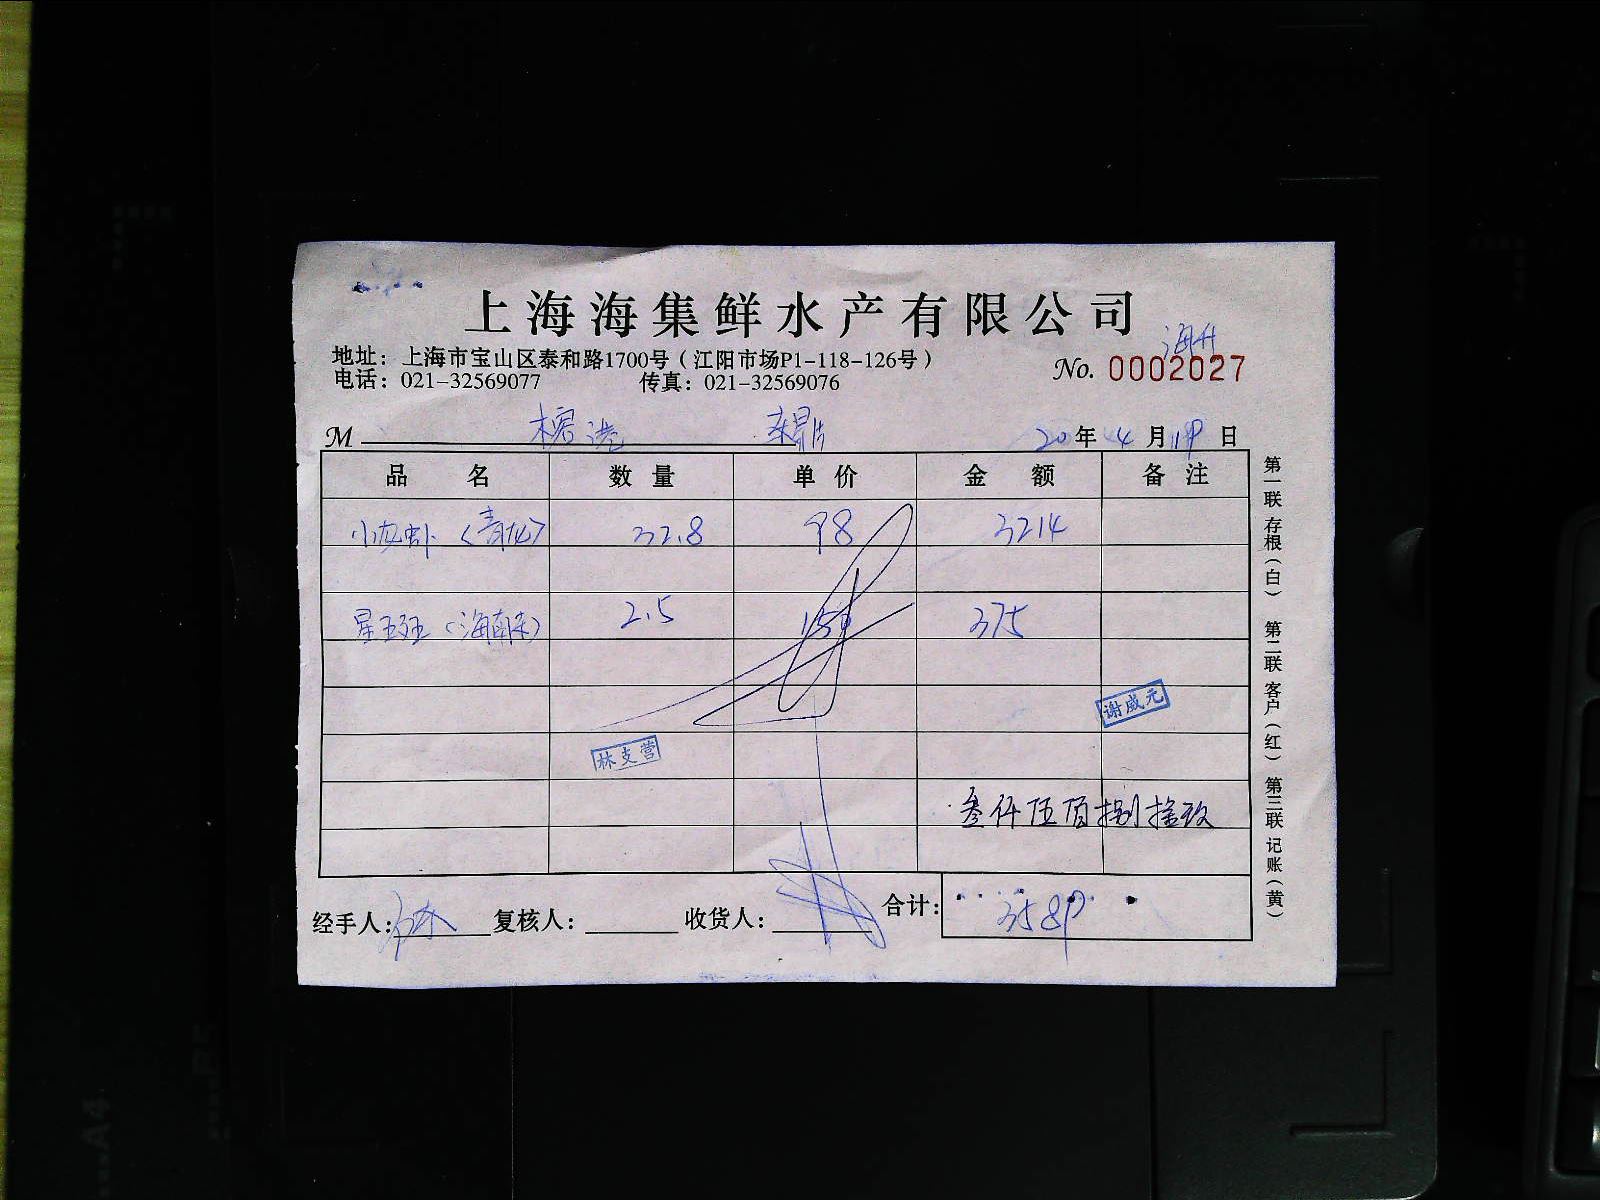 上海海集鲜水产有限公司
海升
地址：上海市宝山区泰和路1700号（江阳市场P1-118-126号）
电话：021-32569077 传真：021-32569076 No. 0002027
M 榕港 20年4月19日
品名 数量 单价 金额 备注
小龙虾（青龙） 32.8 98 3214
星斑（海南） 2.5 150 375
谢威元
林支营
叁仟伍佰捌拾玖
经手人： 复核人： 收货人： 合计： 3589
第一联 存根（白） 第二联 客户（红） 第三联 记账（黄）